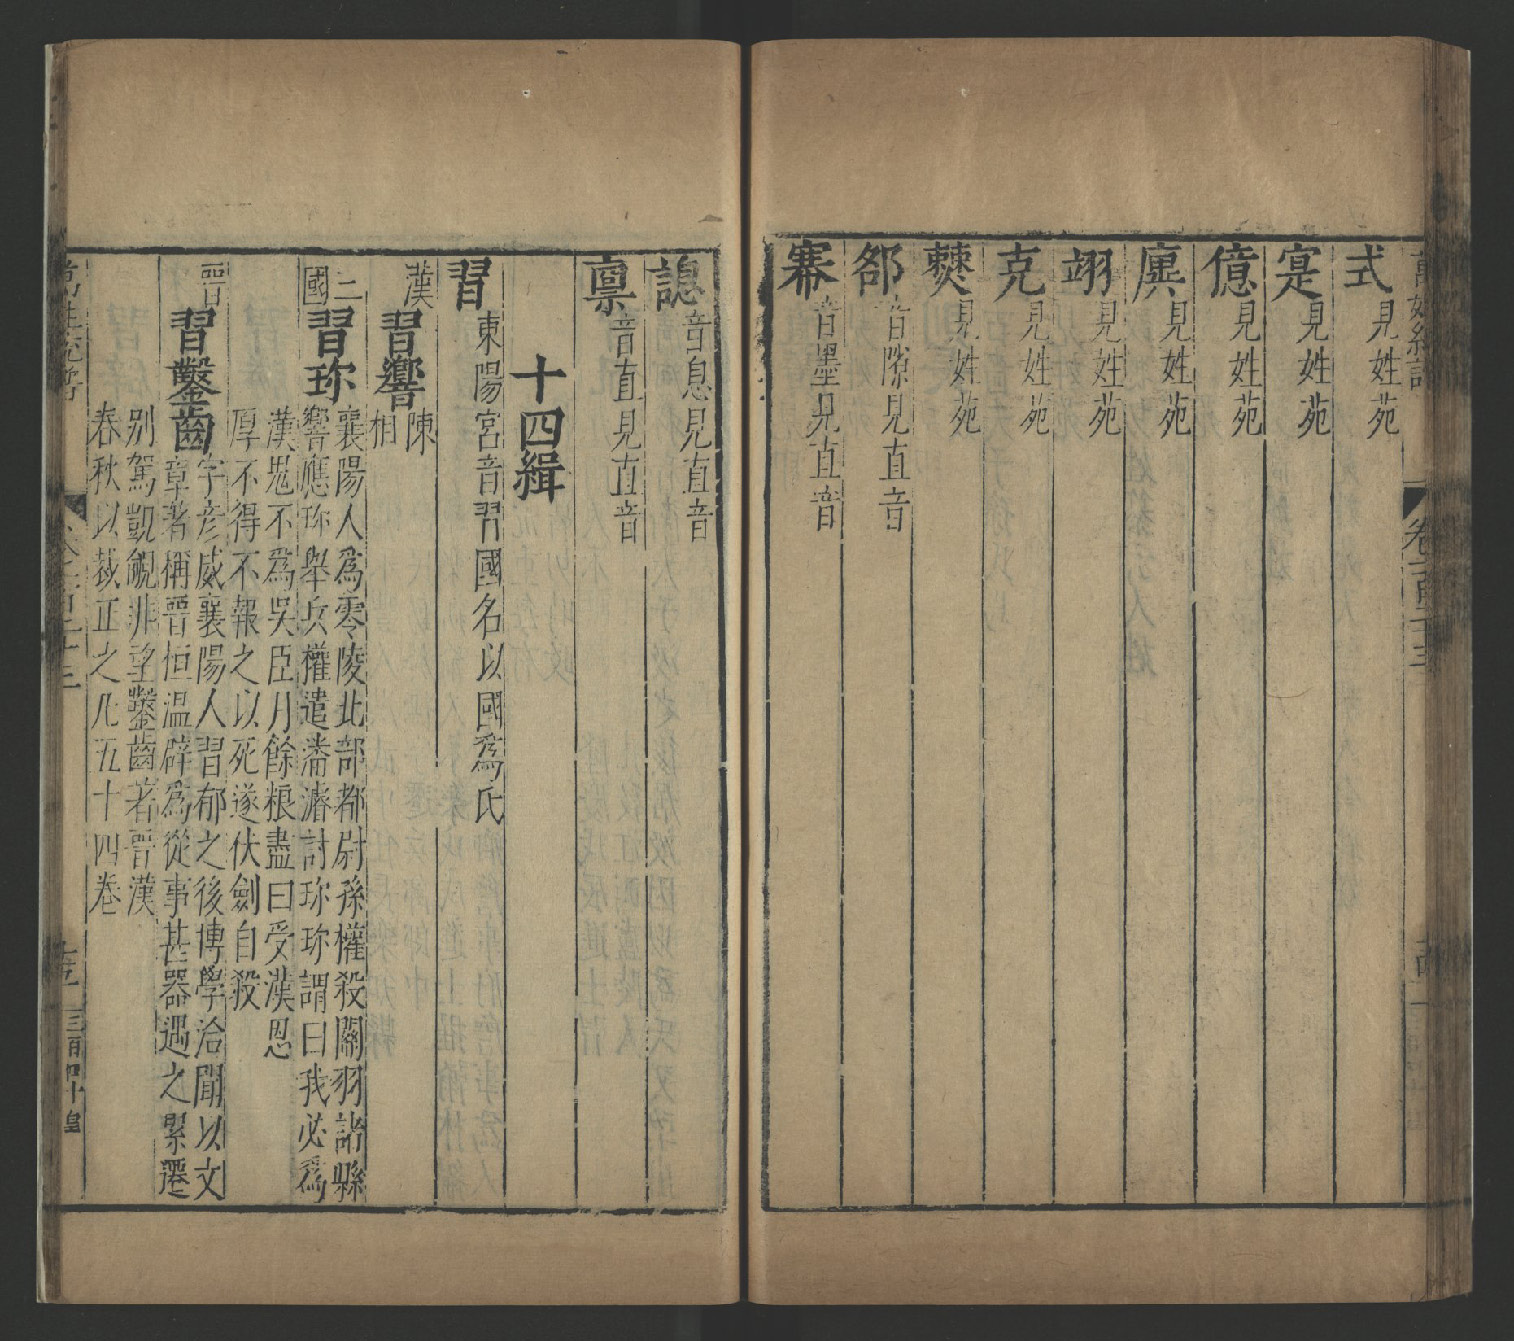 式見姓苑
寔見姓苑
億見姓苑
廙見姓苑
翊見姓苑
克見姓苑
僰見姓苑
郤音隙見直音
纆音墨見直音
諰音息見直音
稟音直見直音
十四緝
習東陽宮音習國名以國為氏
漢習響陳
相
三國習珍襄陽人為零陵北部都尉孫權殺關羽諸縣
響應珍舉兵權遣潘濬討珍珍謂曰我必為
漢鬼不為吳臣月餘粮盡曰受漢恩
厚不得不報之以死遂伏劍自殺
晉習鑿齒字彥威襄陽人習郁之後博學洽聞以文
章著稱晉恒温辟為從事甚器遇之累遷
別駕覬覦非望鑿齒著晉漢
春秋以裁正之凡五十四卷
萬姓統譜
卷之一百二十三